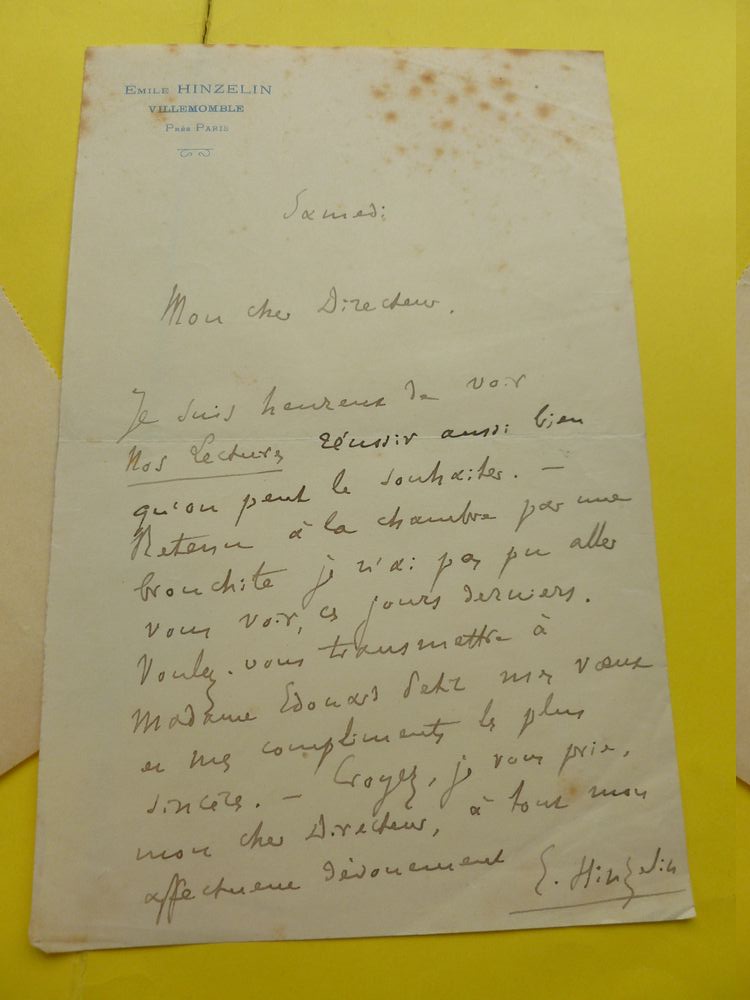 EMILE HINZELIN
VILLEMOMBLE
PRÈS PARIS
Samedi
Mon cher Directeur,
Je suis heureux de voir
Nos Lectures réussir aussi bien
qu'on peut le souhaiter. —
Retenu à la chambre par une
bronchite je n'ai pas pu aller
vous voir, ces jours derniers.
Voulez-vous transmettre à
Madame Edouard Petit mes vœux
et mes compliments les plus
sincères. — Croyez, je vous prie,
mon cher Directeur, à tout mon
affectueux dévouement
E. Hinzelin